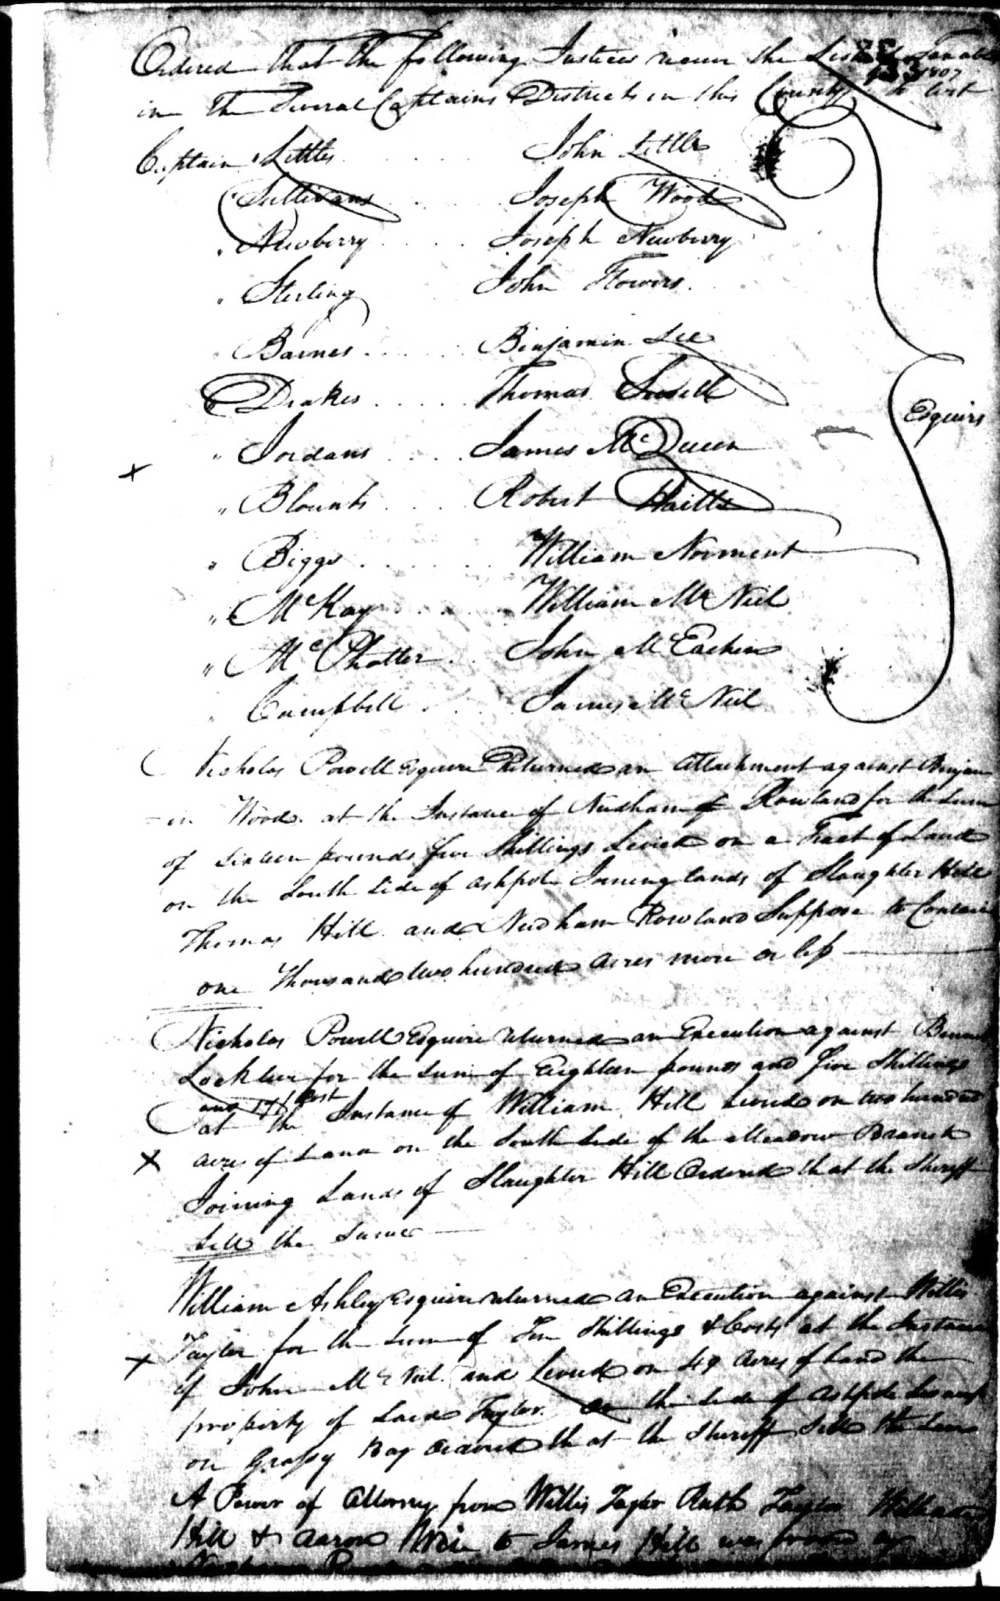 Ordered that the following Justices receive the List of Taxables
in the Several Captains Districts in this County to wit
1807
Captain Littles . . . . John Little
" Sullivans . . . . Joseph Wood
" Newberry . . . . Joseph Newberry
" Sterling John Flowers
" Barnes . . . . Binjamin Lee
" Drakes . . . . Thomas
" Jordans . . . . James McQueen
Esquirs
x
" Blounts . . . Robert
" Biggs . . . . . William Norment
" McKay . . . . William McNeil
" McPhatter . . John McEachin
" Campbell . . . James McNeil
Nicholas Powell Esquire Returned an attachment against Binjam
-in Wood at the Instance of Nudham Rowland for the Sum
of Sixteen pounds five Shillings Levied on a Tract of Land
on the South Side of ashpole Joining lands of Slaughter Hill
Thomas Hill and Nudham Rowland Suppose to Contain
one Thousand two hundred acres more or less
Nicholas Powell Esquire returned an Execution against
Locklier for the Sum of Eighteen pounds and five Shillings
and Cost
at the Instance of William Hill Levied on two hundred
x acres of Land on the South Side of the Meadow Branch
Joining Lands of Slaughter Hill Ordered that the Sheriff
Sell the Same
William Ashley Esquire returned an Execution against Willis
x Taylor for the Sum of Ten Shillings & Costs at the Instance
of John McNeil and Levied on 49 acres of Land the
property of Said Taylor On the Side of ashpole Swamp
on Grassy Bay ordered that the Sheriff Sell the Same
A Power of Attorney from Willis Taylor Ruth Taylor William
Hill & Aaron to James Hill was